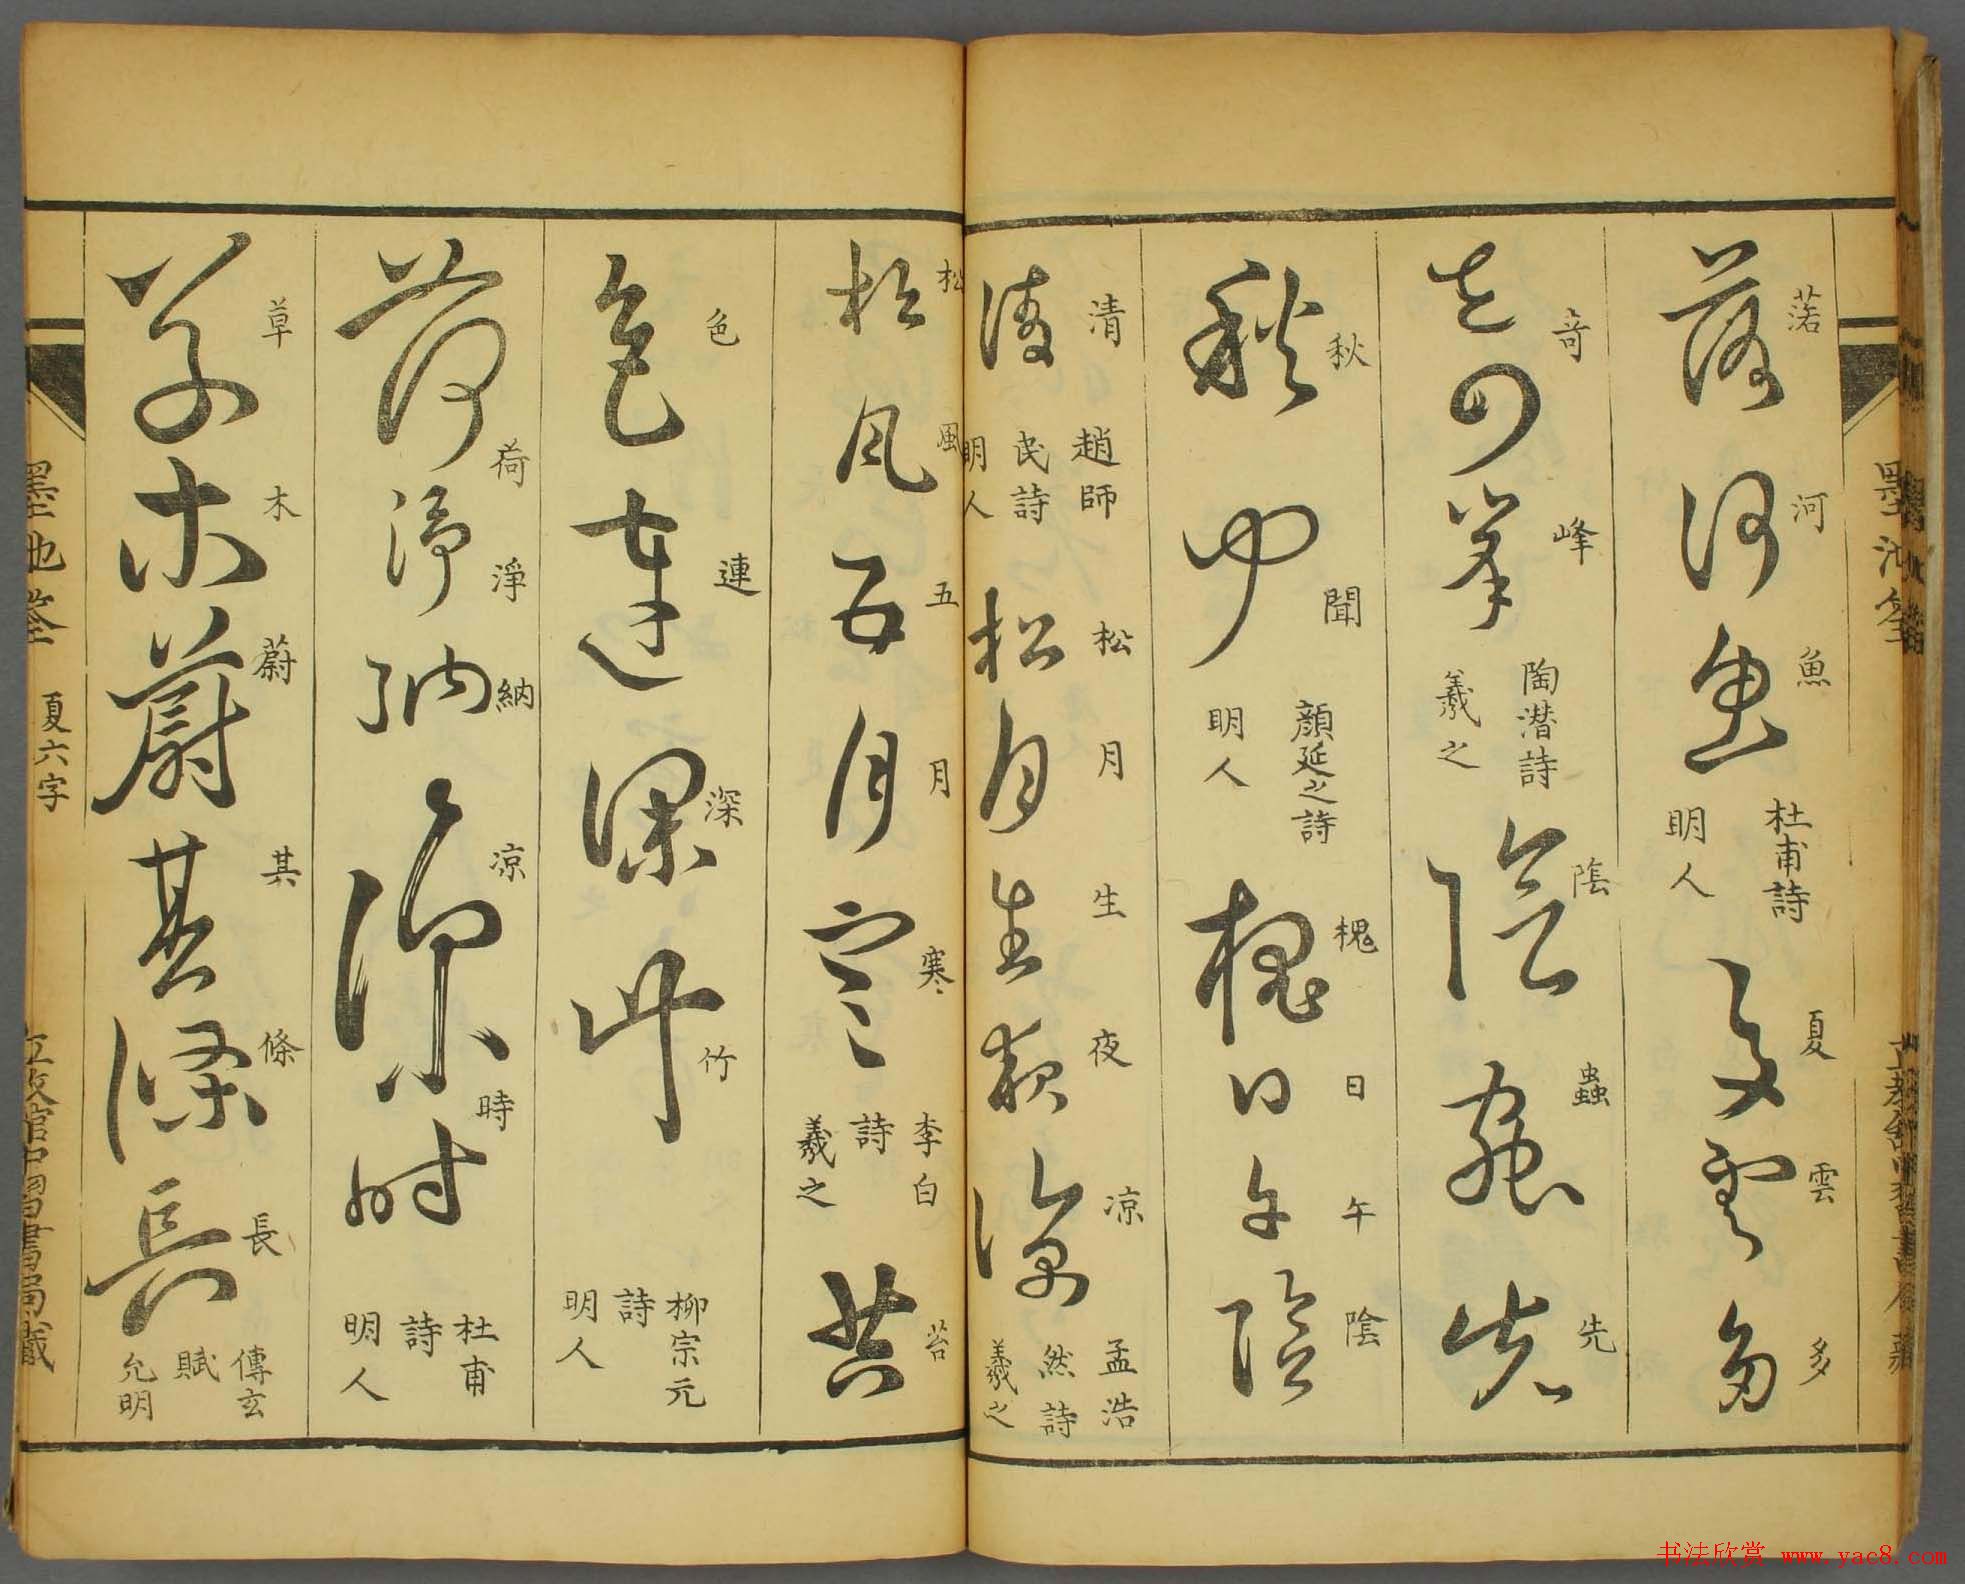 落河魚
杜甫詩
明人
夏雲多
奇峰
陶潛詩
羲之
陰蟲先
秋聞
顏延之詩
明人
槐日午陰
清
趙師
民詩
明人
松月生夜凉
孟浩
然詩
羲之
松風五月寒
李白
詩
羲之
苔
色連深竹
柳宗元
詩
明人
荷淨納凉時
杜甫
詩
明人
草木蔚其條長
傳玄
賦
允明
夏六字
书法欣赏 www.yac8.com